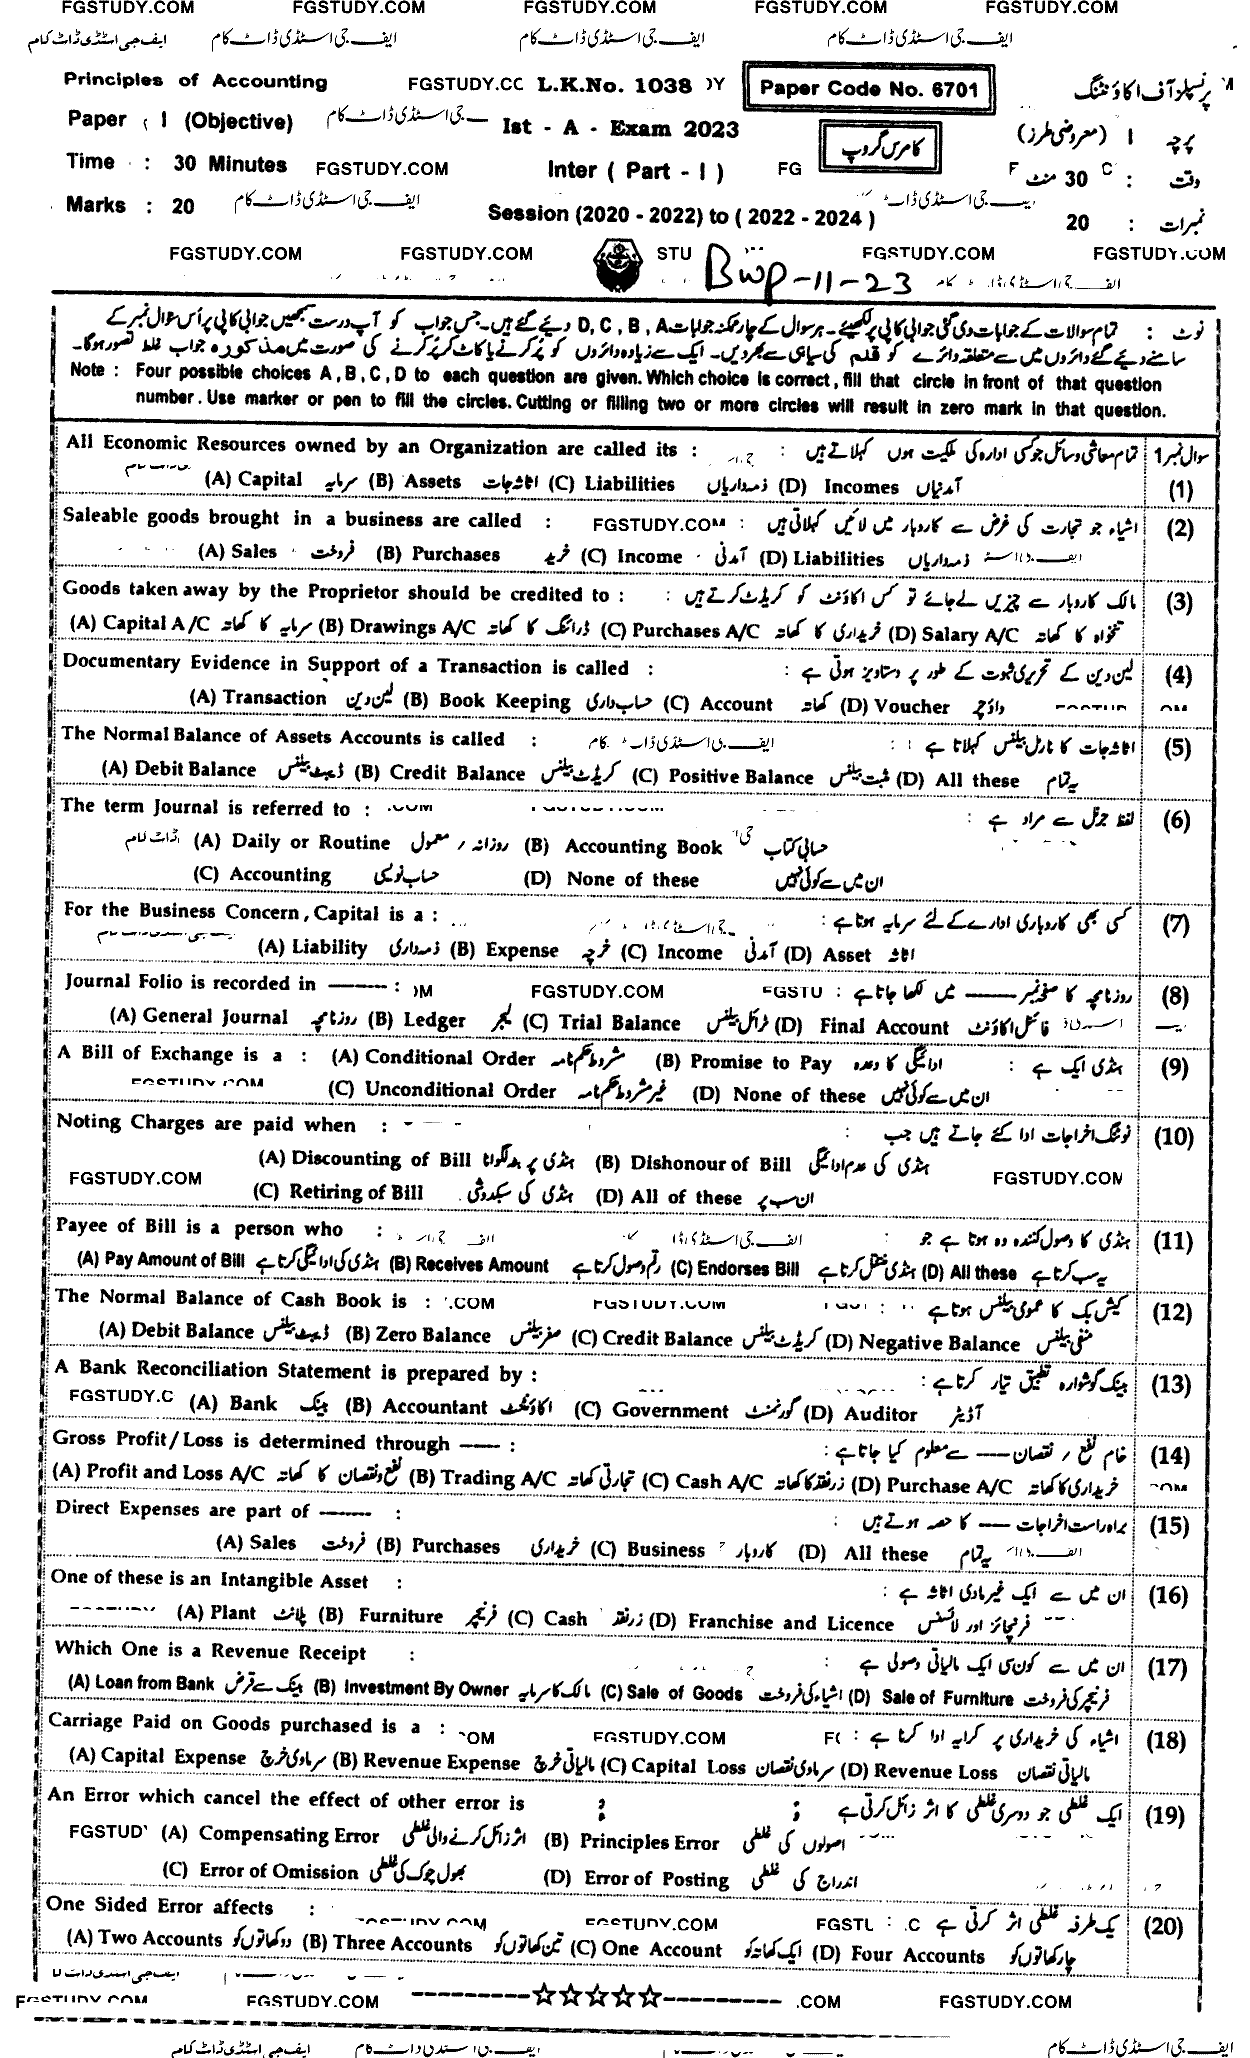 FGSTUDY.COM FGSTUDY.COM FGSTUDY.COM FGSTUDY.COM FGSTUDY.COM
ایف جی اسٹڈی ڈاٹ کام ایف جی اسٹڈی ڈاٹ کام ایف جی اسٹڈی ڈاٹ کام ایف جی اسٹڈی ڈاٹ کام
Principles of Accounting FGSTUDY.CO L.K.No. 1038 Paper Code No. 6701 پرنسپلز آف اکاؤنٹنگ
Paper I (Objective) جی اسٹڈی ڈاٹ کام Ist - A - Exam 2023 کامرس گروپ پرچہ I (معروضی طرز)
Time : 30 Minutes FGSTUDY.COM Inter ( Part - I ) FG وقت : 30 منٹ
Marks : 20 ایف جی اسٹڈی ڈاٹ کام Session (2020 - 2022) to ( 2022 - 2024 ) نمبرات : 20
FGSTUDY.COM FGSTUDY.COM STU FGSTUDY.COM FGSTUDY.COM
BWP-11-23
نوٹ : تمام سوالات کے جوابات دی گئی جوابی کاپی پر لکھیئے۔ ہر سوال کے چار ممکنہ جوابات D, C, B, A دیئے گئے ہیں۔ جس جواب کو آپ درست سمجھیں جوابی کاپی پر اُس سوال نمبر کے
سامنے دیئے گئے دائروں میں سے متعلقہ دائرے کو قلم کی سیاہی سے بھر دیں۔ ایک سے زیادہ دائروں کو پُر کرنے یا کاٹ کر پُر کرنے کی صورت میں مذکورہ جواب غلط تصور ہوگا۔
Note : Four possible choices A, B, C, D to each question are given. Which choice is correct, fill that circle in front of that question
number. Use marker or pen to fill the circles. Cutting or filling two or more circles will result in zero mark in that question.
All Economic Resources owned by an Organization are called its : تمام معاشی وسائل جو کسی ادارہ کی ملکیت ہوں کہلاتے ہیں : سوال نمبر 1
(A) Capital سرمایہ (B) Assets اثاثہ جات (C) Liabilities ذمہ داریاں (D) Incomes آمدنیاں (1)
Saleable goods brought in a business are called : FGSTUDY.COM اشیاء جو تجارت کی غرض سے کاروبار میں لائیں کہلاتی ہیں : (2)
(A) Sales فروخت (B) Purchases خرید (C) Income آمدنی (D) Liabilities ذمہ داریاں
Goods taken away by the Proprietor should be credited to : مالک کاروبار سے چیزیں لے جائے تو کس اکاؤنٹ کو کریڈٹ کرتے ہیں : (3)
(A) Capital A/C سرمایہ کا کھاتہ (B) Drawings A/C ڈرائنگ کا کھاتہ (C) Purchases A/C خریداری کا کھاتہ (D) Salary A/C تنخواہ کا کھاتہ
Documentary Evidence in Support of a Transaction is called : لین دین کے تحریری ثبوت کے طور پر دستاویز ہوتی ہے : (4)
(A) Transaction لین دین (B) Book Keeping حساب داری (C) Account کھاتہ (D) Voucher واؤچر
The Normal Balance of Assets Accounts is called : ایف جی اسٹڈی ڈاٹ کام اثاثہ جات کا نارمل بیلنس کہلاتا ہے : (5)
(A) Debit Balance ڈیبٹ بیلنس (B) Credit Balance کریڈٹ بیلنس (C) Positive Balance مثبت بیلنس (D) All these یہ تمام
The term Journal is referred to : .COM لفظ جرنل سے مراد ہے : (6)
(A) Daily or Routine روزانہ / معمول (B) Accounting Book حسابی کتاب
(C) Accounting حساب نویسی (D) None of these ان میں سے کوئی نہیں
For the Business Concern, Capital is a : کسی بھی کاروباری ادارے کے لئے سرمایہ ہوتا ہے : (7)
(A) Liability ذمہ داری (B) Expense خرچہ (C) Income آمدنی (D) Asset اثاثہ
Journal Folio is recorded in ------- : FGSTUDY.COM FGSTU روزنامچہ کا صفحہ نمبر ------ میں لکھا جاتا ہے : (8)
(A) General Journal روزنامچہ (B) Ledger لیجر (C) Trial Balance ٹرائل بیلنس (D) Final Account فائنل اکاؤنٹ
A Bill of Exchange is a : (A) Conditional Order مشروط حکم نامہ (B) Promise to Pay ادائیگی کا وعدہ ہنڈی ایک ہے : (9)
FGSTUDY.COM (C) Unconditional Order غیر مشروط حکم نامہ (D) None of these ان میں سے کوئی نہیں
Noting Charges are paid when : نوٹنگ اخراجات ادا کئے جاتے ہیں جب : (10)
(A) Discounting of Bill ہنڈی پر بٹہ لگوانا (B) Dishonour of Bill ہنڈی کی عدم ادائیگی
FGSTUDY.COM (C) Retiring of Bill ہنڈی کی سبکدوشی (D) All of these ان سب پر FGSTUDY.COM
Payee of Bill is a person who : ہنڈی کا وصول کنندہ وہ ہوتا ہے جو : (11)
(A) Pay Amount of Bill ہنڈی کی ادائیگی کرتا ہے (B) Receives Amount رقم وصول کرتا ہے (C) Endorses Bill ہنڈی منتقل کرتا ہے (D) All these یہ سب کرتا ہے
The Normal Balance of Cash Book is : .COM FGSTUDY.COM کیش بک کا عمومی بیلنس ہوتا ہے : (12)
(A) Debit Balance ڈیبٹ بیلنس (B) Zero Balance صفر بیلنس (C) Credit Balance کریڈٹ بیلنس (D) Negative Balance منفی بیلنس
A Bank Reconciliation Statement is prepared by : بینک گوشوارہ تطبیق تیار کرتا ہے : (13)
FGSTUDY.C (A) Bank بینک (B) Accountant اکاؤنٹنٹ (C) Government گورنمنٹ (D) Auditor آڈیٹر
Gross Profit/Loss is determined through ----- : خام نفع / نقصان ----- سے معلوم کیا جاتا ہے : (14)
(A) Profit and Loss A/C نفع و نقصان کا کھاتہ (B) Trading A/C تجارتی کھاتہ (C) Cash A/C زرنقد کا کھاتہ (D) Purchase A/C خریداری کا کھاتہ
Direct Expenses are part of ------- : براہ راست اخراجات ---- کا حصہ ہوتے ہیں : (15)
(A) Sales فروخت (B) Purchases خریداری (C) Business کاروبار (D) All these یہ تمام
One of these is an Intangible Asset : ان میں سے ایک غیر مادی اثاثہ ہے : (16)
(A) Plant پلانٹ (B) Furniture فرنیچر (C) Cash زرنقد (D) Franchise and Licence فرنچائز اور لائسنس
Which One is a Revenue Receipt : ان میں سے کون سی ایک مالیاتی وصولی ہے : (17)
(A) Loan from Bank بینک سے قرض (B) Investment By Owner مالک کا سرمایہ (C) Sale of Goods اشیاء کی فروخت (D) Sale of Furniture فرنیچر کی فروخت
Carriage Paid on Goods purchased is a : COM FGSTUDY.COM اشیاء کی خریداری پر کرایہ ادا کرنا ہے : (18)
(A) Capital Expense سرمادی خرچ (B) Revenue Expense مالیاتی خرچ (C) Capital Loss سرمادی نقصان (D) Revenue Loss مالیاتی نقصان
An Error which cancel the effect of other error is : ایک غلطی جو دوسری غلطی کا اثر زائل کرتی ہے : (19)
FGSTUD (A) Compensating Error اثر زائل کرنے والی غلطی (B) Principles Error اصولوں کی غلطی
(C) Error of Omission بھول چوک کی غلطی (D) Error of Posting اندراج کی غلطی
One Sided Error affects : یک طرفہ غلطی اثر کرتی ہے : (20)
(A) Two Accounts دو کھاتوں کو (B) Three Accounts تین کھاتوں کو (C) One Account ایک کھاتہ کو (D) Four Accounts چار کھاتوں کو
FGSTUDY.COM FGSTUDY.COM ----------☆☆☆☆☆---------- .COM FGSTUDY.COM
ایف جی اسٹڈی ڈاٹ کام ایف جی اسٹڈی ڈاٹ کام ایف جی اسٹڈی ڈاٹ کام